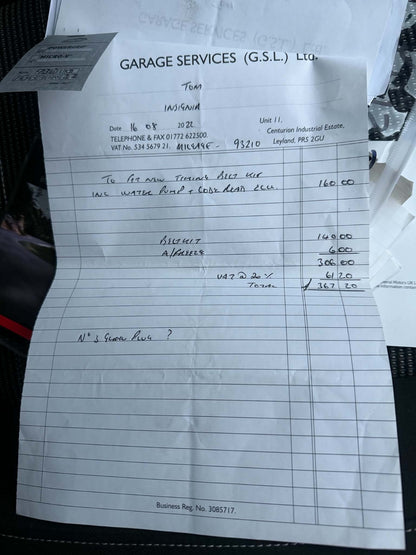 GARAGE SERVICES (G.S.L.) Ltd.
TOM
INSIGNIA
Date 16 08 2022
Unit 11,
Centurion Industrial Estate,
Leyland, PR5 2GU
TELEPHONE & FAX 01772 622500
VAT No. 534 5679 21. MILEAGE - 93210
TO FIT NEW TIMING BELT KIT
INC WATER PUMP + CODE READ ECU. 160.00
BELT KIT 140.00
A/FREEZE 6.00
306.00
VAT @ 20% 61 20
TOTAL £ 367 20
No 3 GLOW PLUG ?
Business Reg. No. 3085717.